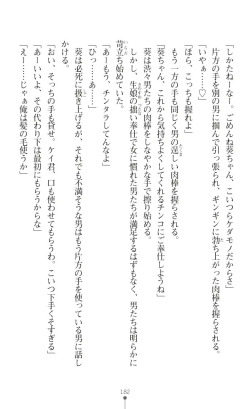 「しかたねーなー。ごめんね葵ちゃん、こいつらケダモノだからさ」
片方の手を別の男に掴んで引っ張られ、ギンギンに勃ち上がった肉棒を握らされる。
「いやぁ……♡」
「ほら、こっちも握れよ」
もう一方の手も同じく男の逞しい肉棒を握らされる。
「葵ちゃん、これから気持ちよくしてくれるチンコにご奉仕しようね」
葵は渋々男たちの肉棒をしなやかな手で擦り始める。
しかし、生娘の拙い奉仕で女に慣れた男たちが満足するはずもなく、男たちは明らかに
苛立ち始めていた。
「あーもう、チンタラしてんなよ」
「ひっ……あ……」
葵は必死に扱き上げるが、それでも不満そうな男はもう片方の手を使っている男に話し
かける。
「おい、そっちの手も貸せ、ケイ君。口も使わせてもらうわ。こいつ下手くそすぎる」
「あーいいよ、その代わり下は最初にもらうからな」
「えー……じゃぁ俺は髪の毛使うか」
182